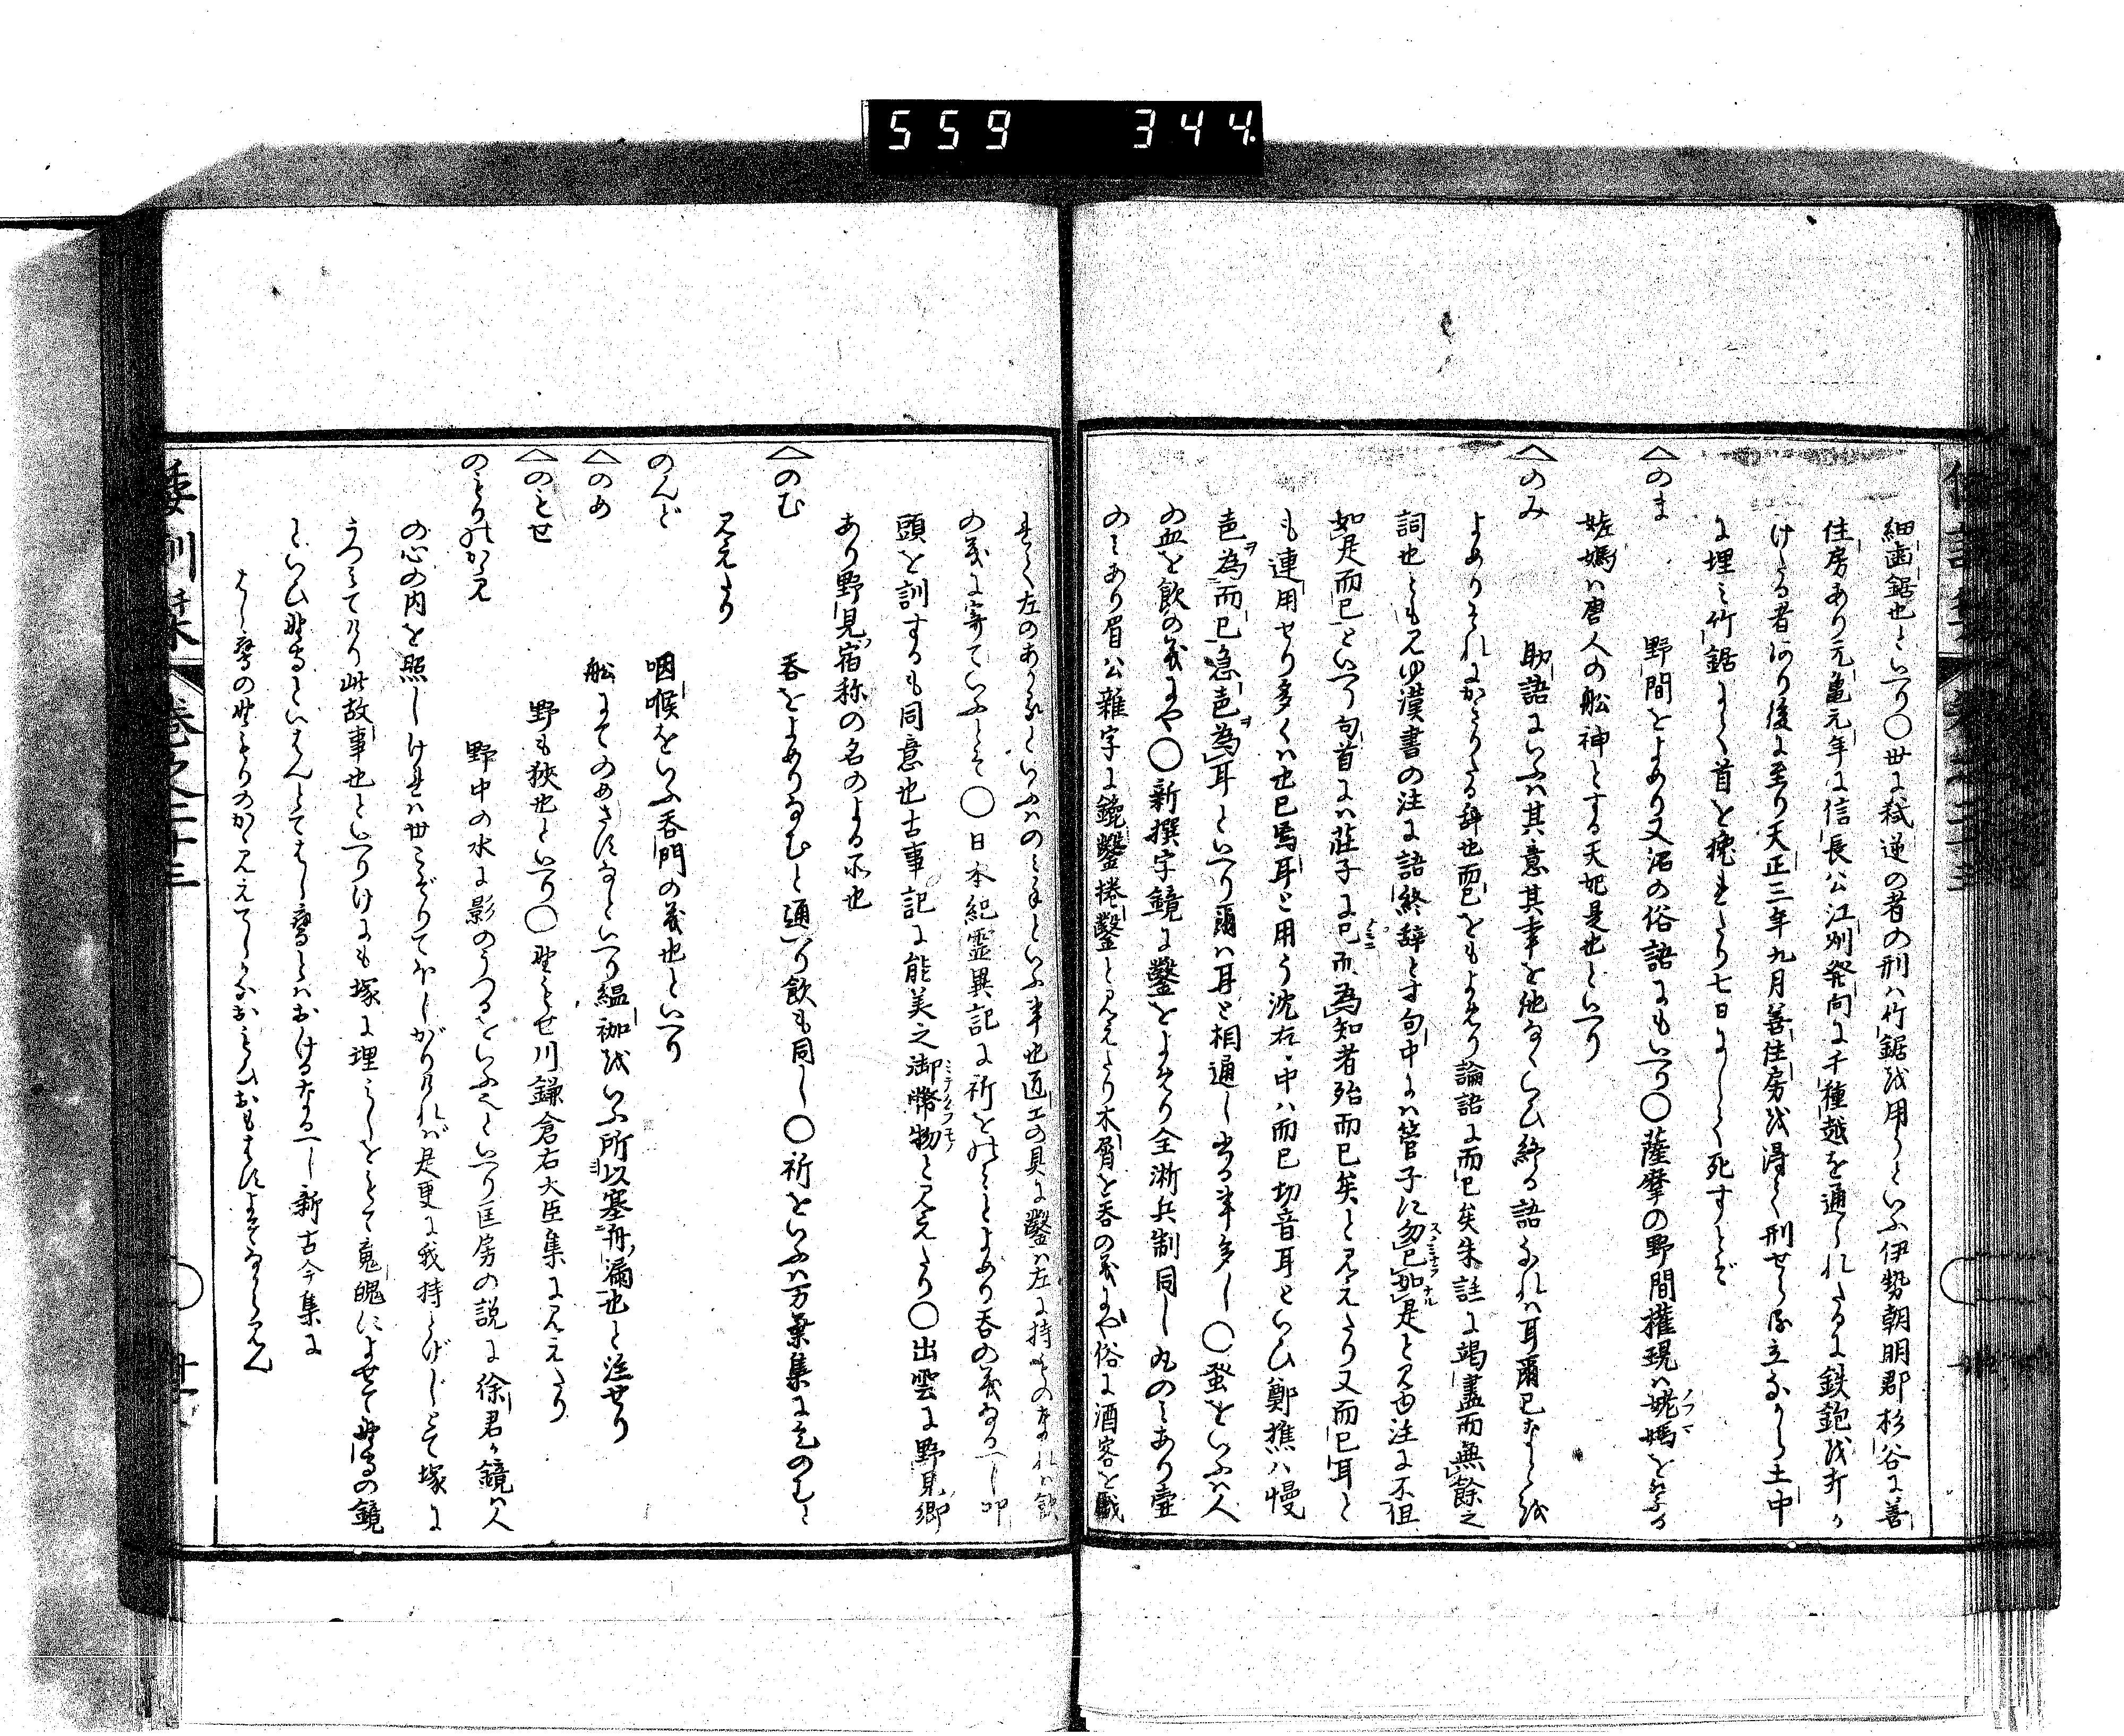 559 344
細歯鋸也といへり○世に弑逆の者の刑ハ竹鋸を用うといふ伊勢朝明郡杉谷に善
住房あり元亀元年に信長公江州発向に千種越を通られたるに鉄炮を打か
けたる者あり後に至り天正三年九月善住房を得て刑せらる立ながら土中
に埋ミ竹鋸にて首を挽せたり七日にして死すとぞ
へのま 野間をよめり又沼の俗語にもいへり○薩摩の野間権現ハ娩媽を
娩媽ハ唐人の船神とする天妃是也といへり
へのみ 助語にいふハ其意其事を他なくいひ終る語なれハ耳爾已などを
よめりそれにかきりたる辞也而已をもよめり論語に而已矣朱註に竭盡而無餘之
詞也とも見ゆ漢書の注に語終辞とす句中にハ管子に勿已如是と見由注に不但
如是而已といへり句首にハ荘子に已而為知者殆而已矣と見えたり又而已耳と
も連用せり多くハ也已焉耳と用う沈存中ハ而已切音耳といひ鄭樵ハ慢
邑為而已急邑為耳といへり爾ハ耳と相通し当る事多し○蚤をいふハ人
の血を飲の義にや○新撰字鏡に鑿をよめり全淅兵制同し丸のミあり壷
のミあり眉公雑字に鐃鑿捲鑿と見えたり木屑を呑の義にや俗に酒客を戯
れて左のあるといふハのミ手といふ事也匠工の具に鑿ハ左に持ものなれハ飲
の義に寄ていふとそ○日本紀霊異記に祈をのミとよめり呑の義なるへし叩
頭を訓するも同意也古事記に能美之御幣物と見えたり○出雲に野見郷
あり野見宿祢の名のよる所也
へのむ 呑をよめりなむと通へり飲も同し○祈をいふハ万葉集に乞のむと
見えたり
のんど 咽喉をいふ呑門の義也といへり
へのめ 船にてのめさすなといへり縕袽をいふ所以塞舟漏也と注せり
へのもせ 野も狭也といへり○野もせ川鎌倉右大臣集に見えたり
のもりのかゞみ 野中の水に影のうつるをいふといへり匡房の説に徐君か鏡ハ人
の心の内を照しけれハ世こぞりてほしがりけれバ是更に我持とげじとて塚に
うつミてけり此故事也といへりけにも塚に埋ミしをもて鬼魄によせて野守の鏡
といひ野守といはんとてはし鷹とハおけるなるへし新古今集に
はし鷹の野もりのかゝみえてしかなおもひおもはすよそなから見ん
倭訓栞 巻之二十三